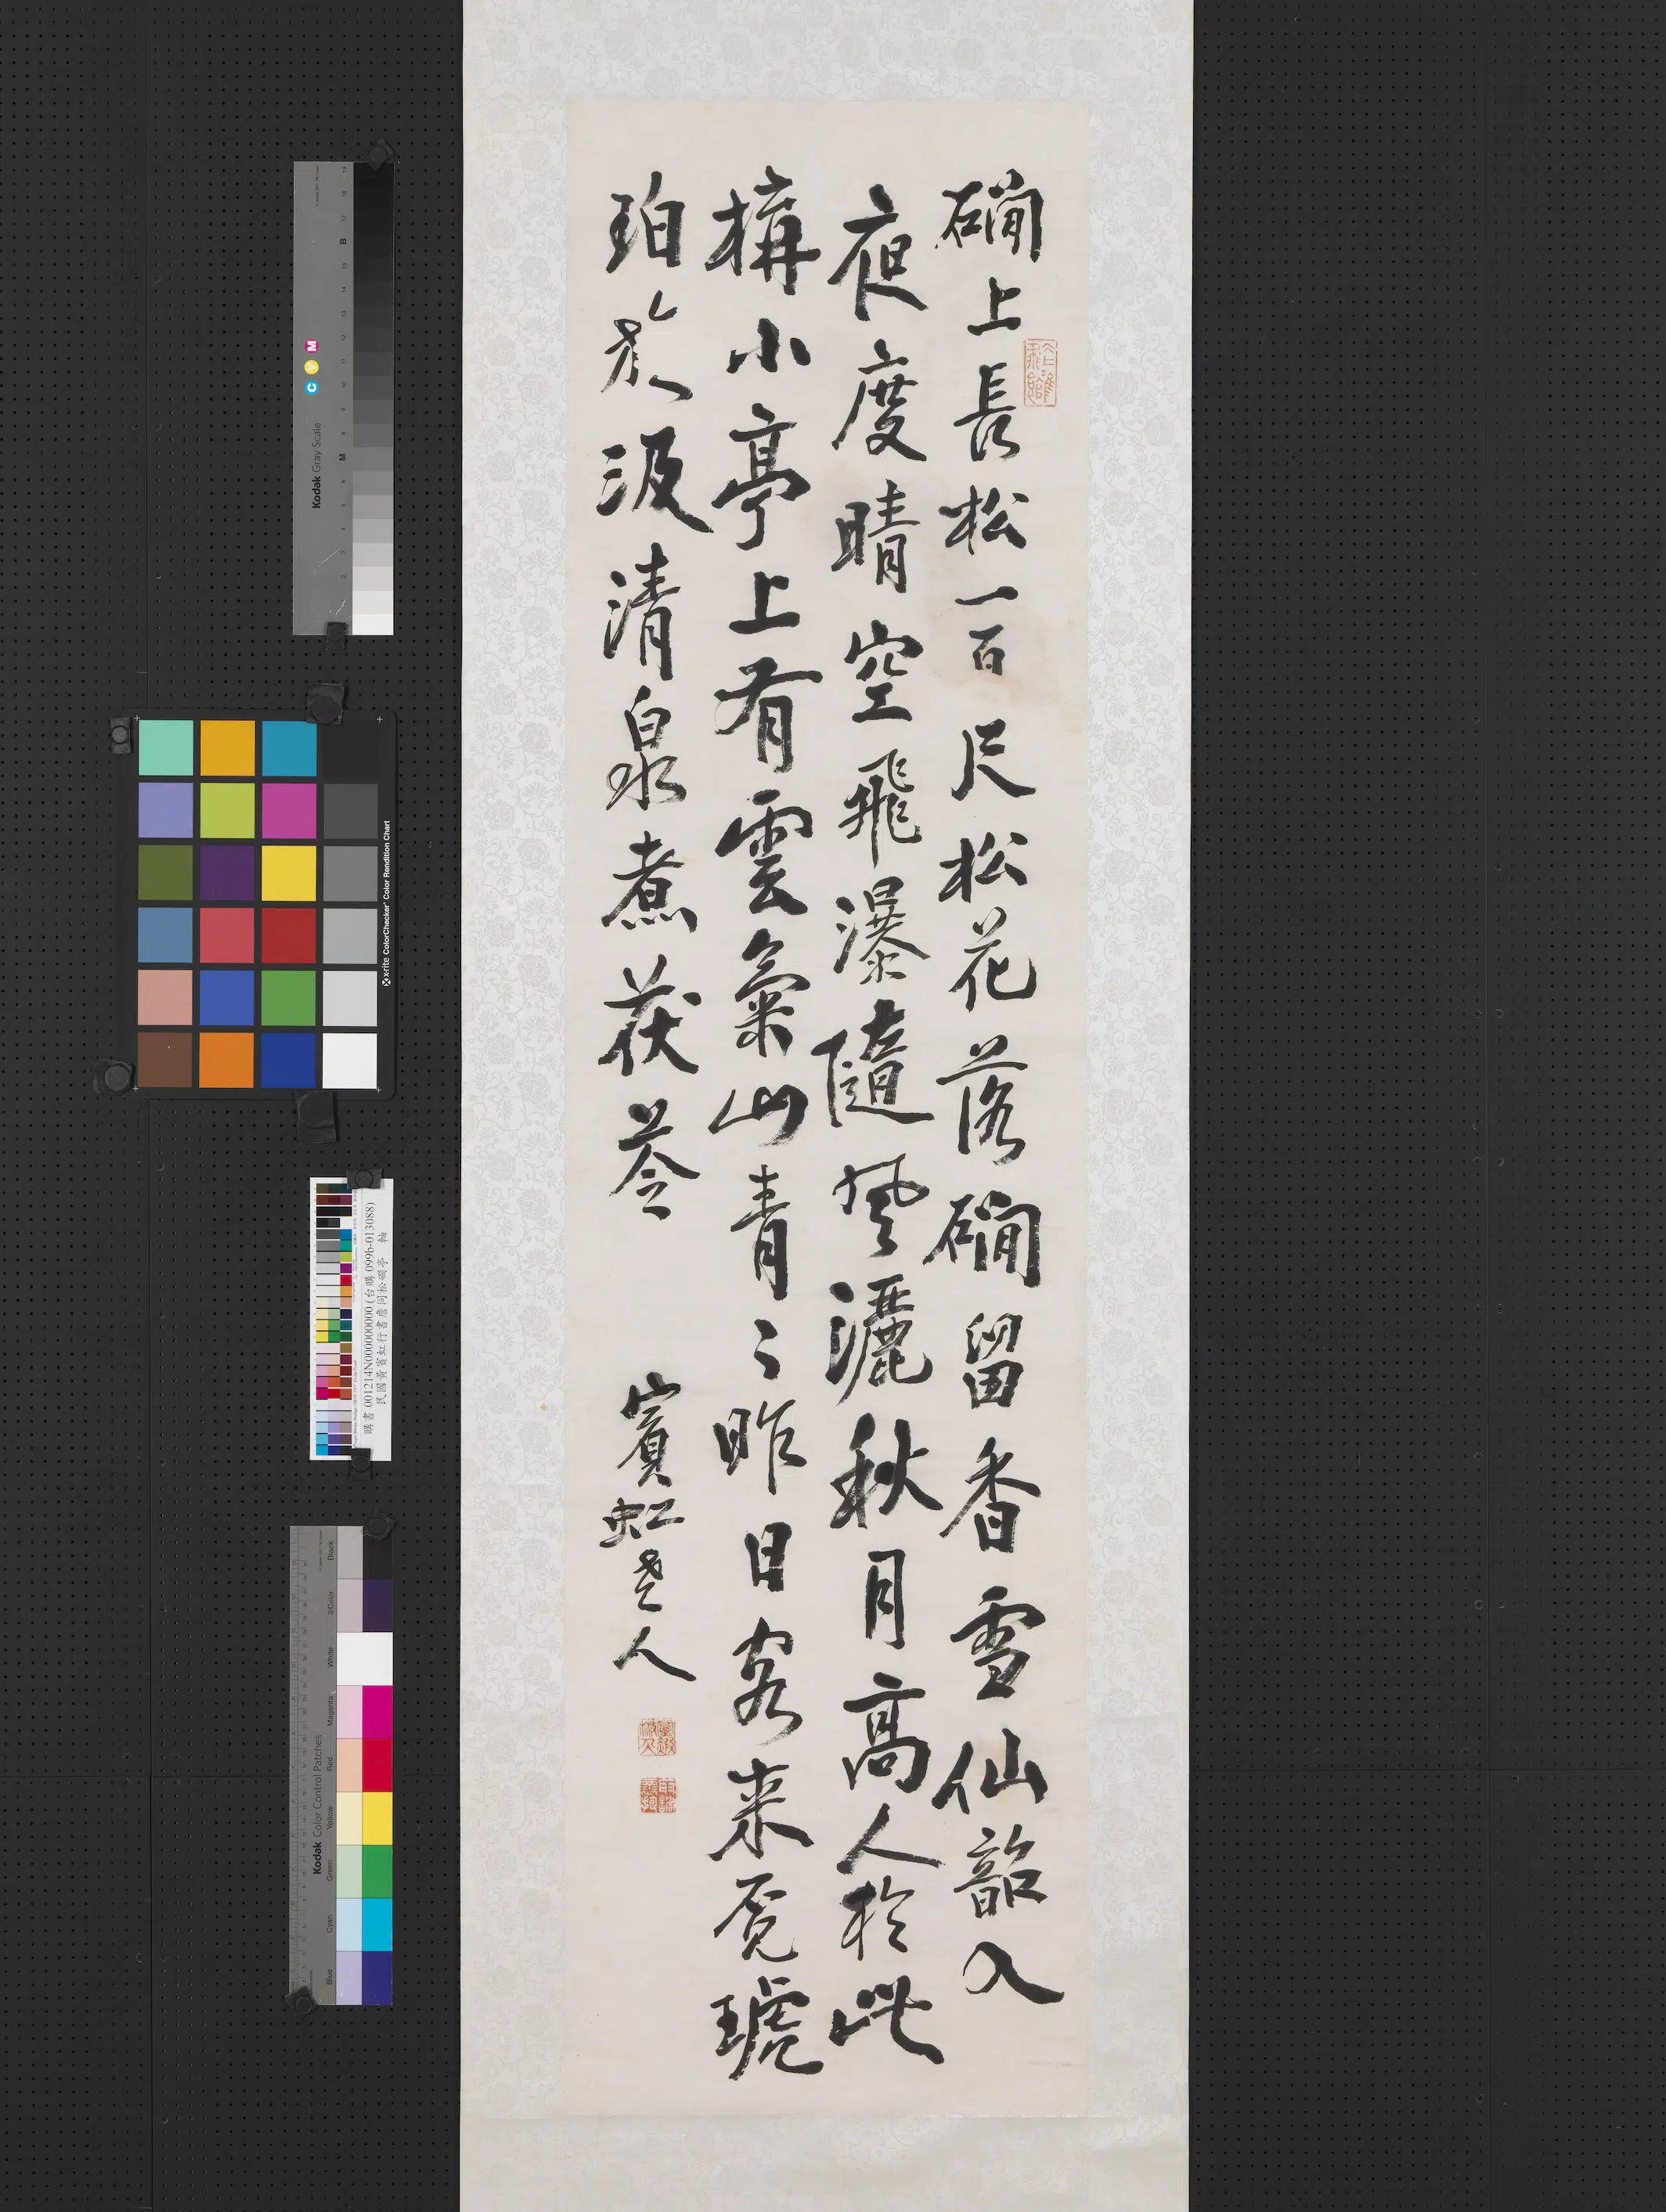 磵上長松一百尺松花落磵留香雪仙韶入
夜度晴空飛瀑隨風灑秋月高人於此
構小亭上有雲氣山青〻昨日客来覓琥
珀旋汲清泉煮茯苓
賓虹老人
Kodak Gray Scale
C Y M
A M B
x-rite ColorChecker Color Rendition Chart
購書 001214N000000000 (台購 099b-013088)
民國黃賓虹行書詹同松磵亭 軸
Kodak Color Control Patches
Blue Cyan Green Yellow Red Magenta White 3/Color Black